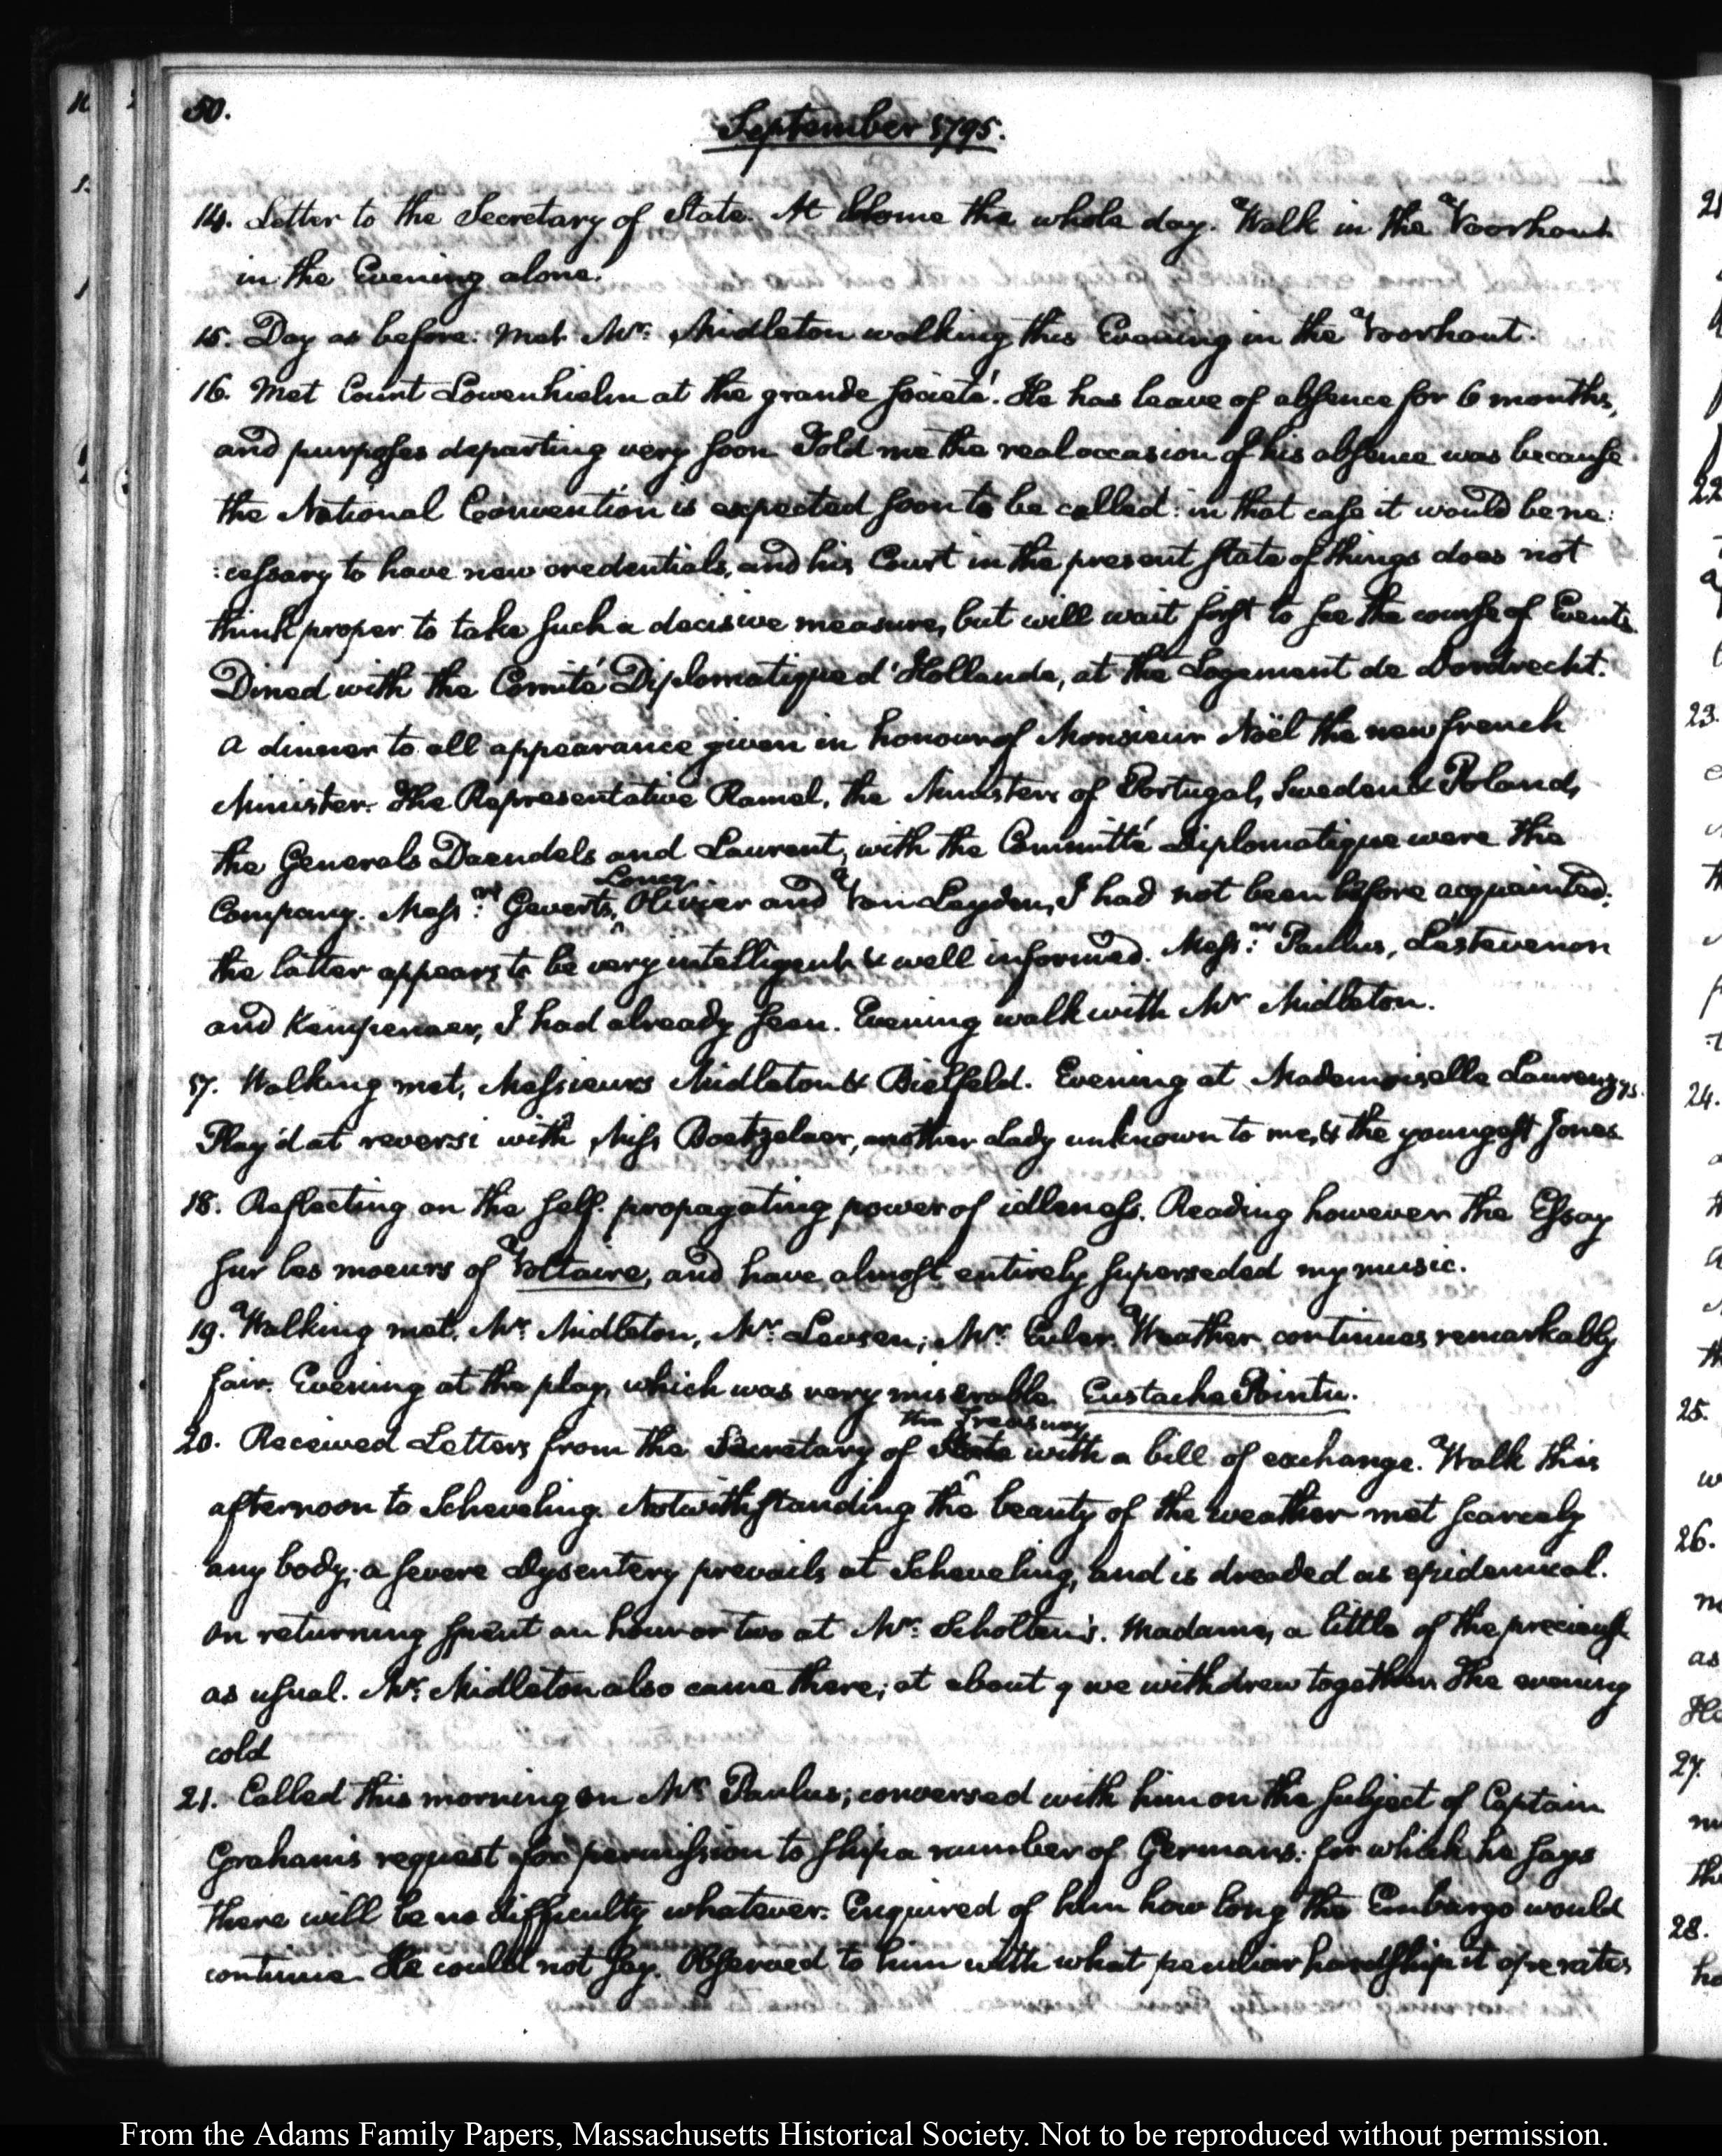 50.
September 1795.
14. Letter to the Secretary of State. At home the whole day. Walk in the Voorhout
in the Evening alone.
15. Day as before. Met Mr: Midleton walking this Evening in the Voorhout.
16. Met Count Lowenhielm at the grande societé. He has leave of absence for 6 months,
and purposes departing very soon. Told me the real occasion of his absence was because
the National Convention is expected soon to be called: in that case it would be ne:
:cessary to have new credentials, and his Court in the present state of things does not
think proper to take such a decisive measure, but will wait first to see the course of Events.
Dined with the Comité Diplomatique d'Hollande, at the Logement de Dordrecht.
A dinner to all appearance given in honour of Monsieur Noël the new french
Minister. The Representative Ramel, the Ministers of Portugal, Sweden & Poland,
the Generals Daendels and Laurent, with the Committé Diplomatique were the
Company. Messrs: Geverts, Loncq, Olivier and Van Leyden, I had not been before acquainted:
the latter appears to be very intelligent & well informed. Messrs: Paulus, Lestevenon
and Kempenaer, I had already seen. Evening walk with Mr Midleton.
17. Walking met, Messieurs Midleton & Bielfeld. Evening at Mademoiselle Laurenzy's.
Play'd at reversi with Miss Boetzelaer, another Lady unknown to me, & the youngest Jones
18. Reflecting on the self-propagating power of idleness. Reading however the Essay
sur les moeurs of Voltaire, and have almost entirely superseded my music.
19. Walking met, Mr: Midleton, Mr: Levsen, Mr: Euler. Weather continues remarkably
fair. Evening at the play, which was very miserable. Eustache Pointu.
20. Received Letters from the Secretary of State the Treasury with a bill of exchange. Walk this
afternoon to Scheveling. Notwithstanding the beauty of the weather met scarcely
any body; a severe dysentery prevails at Scheveling, and is dreaded as epidemical.
On returning spent an hour or two at Mr: Scholten's. Madame, a little of the precieuse
as usual. Mr: Midleton also came there; at about 9 we withdrew together. The evening
cold
21. Called this morning on Mr: Paulus; conversed with him on the subject of Captain
Graham's request for permission to ship a number of Germans: for which he says
there will be no difficulty whatever. Enquired of him how long the Embargo would
continue. He could not say. Observed to him with what peculiar hardship it operates
From the Adams Family Papers, Massachusetts Historical Society. Not to be reproduced without permission.